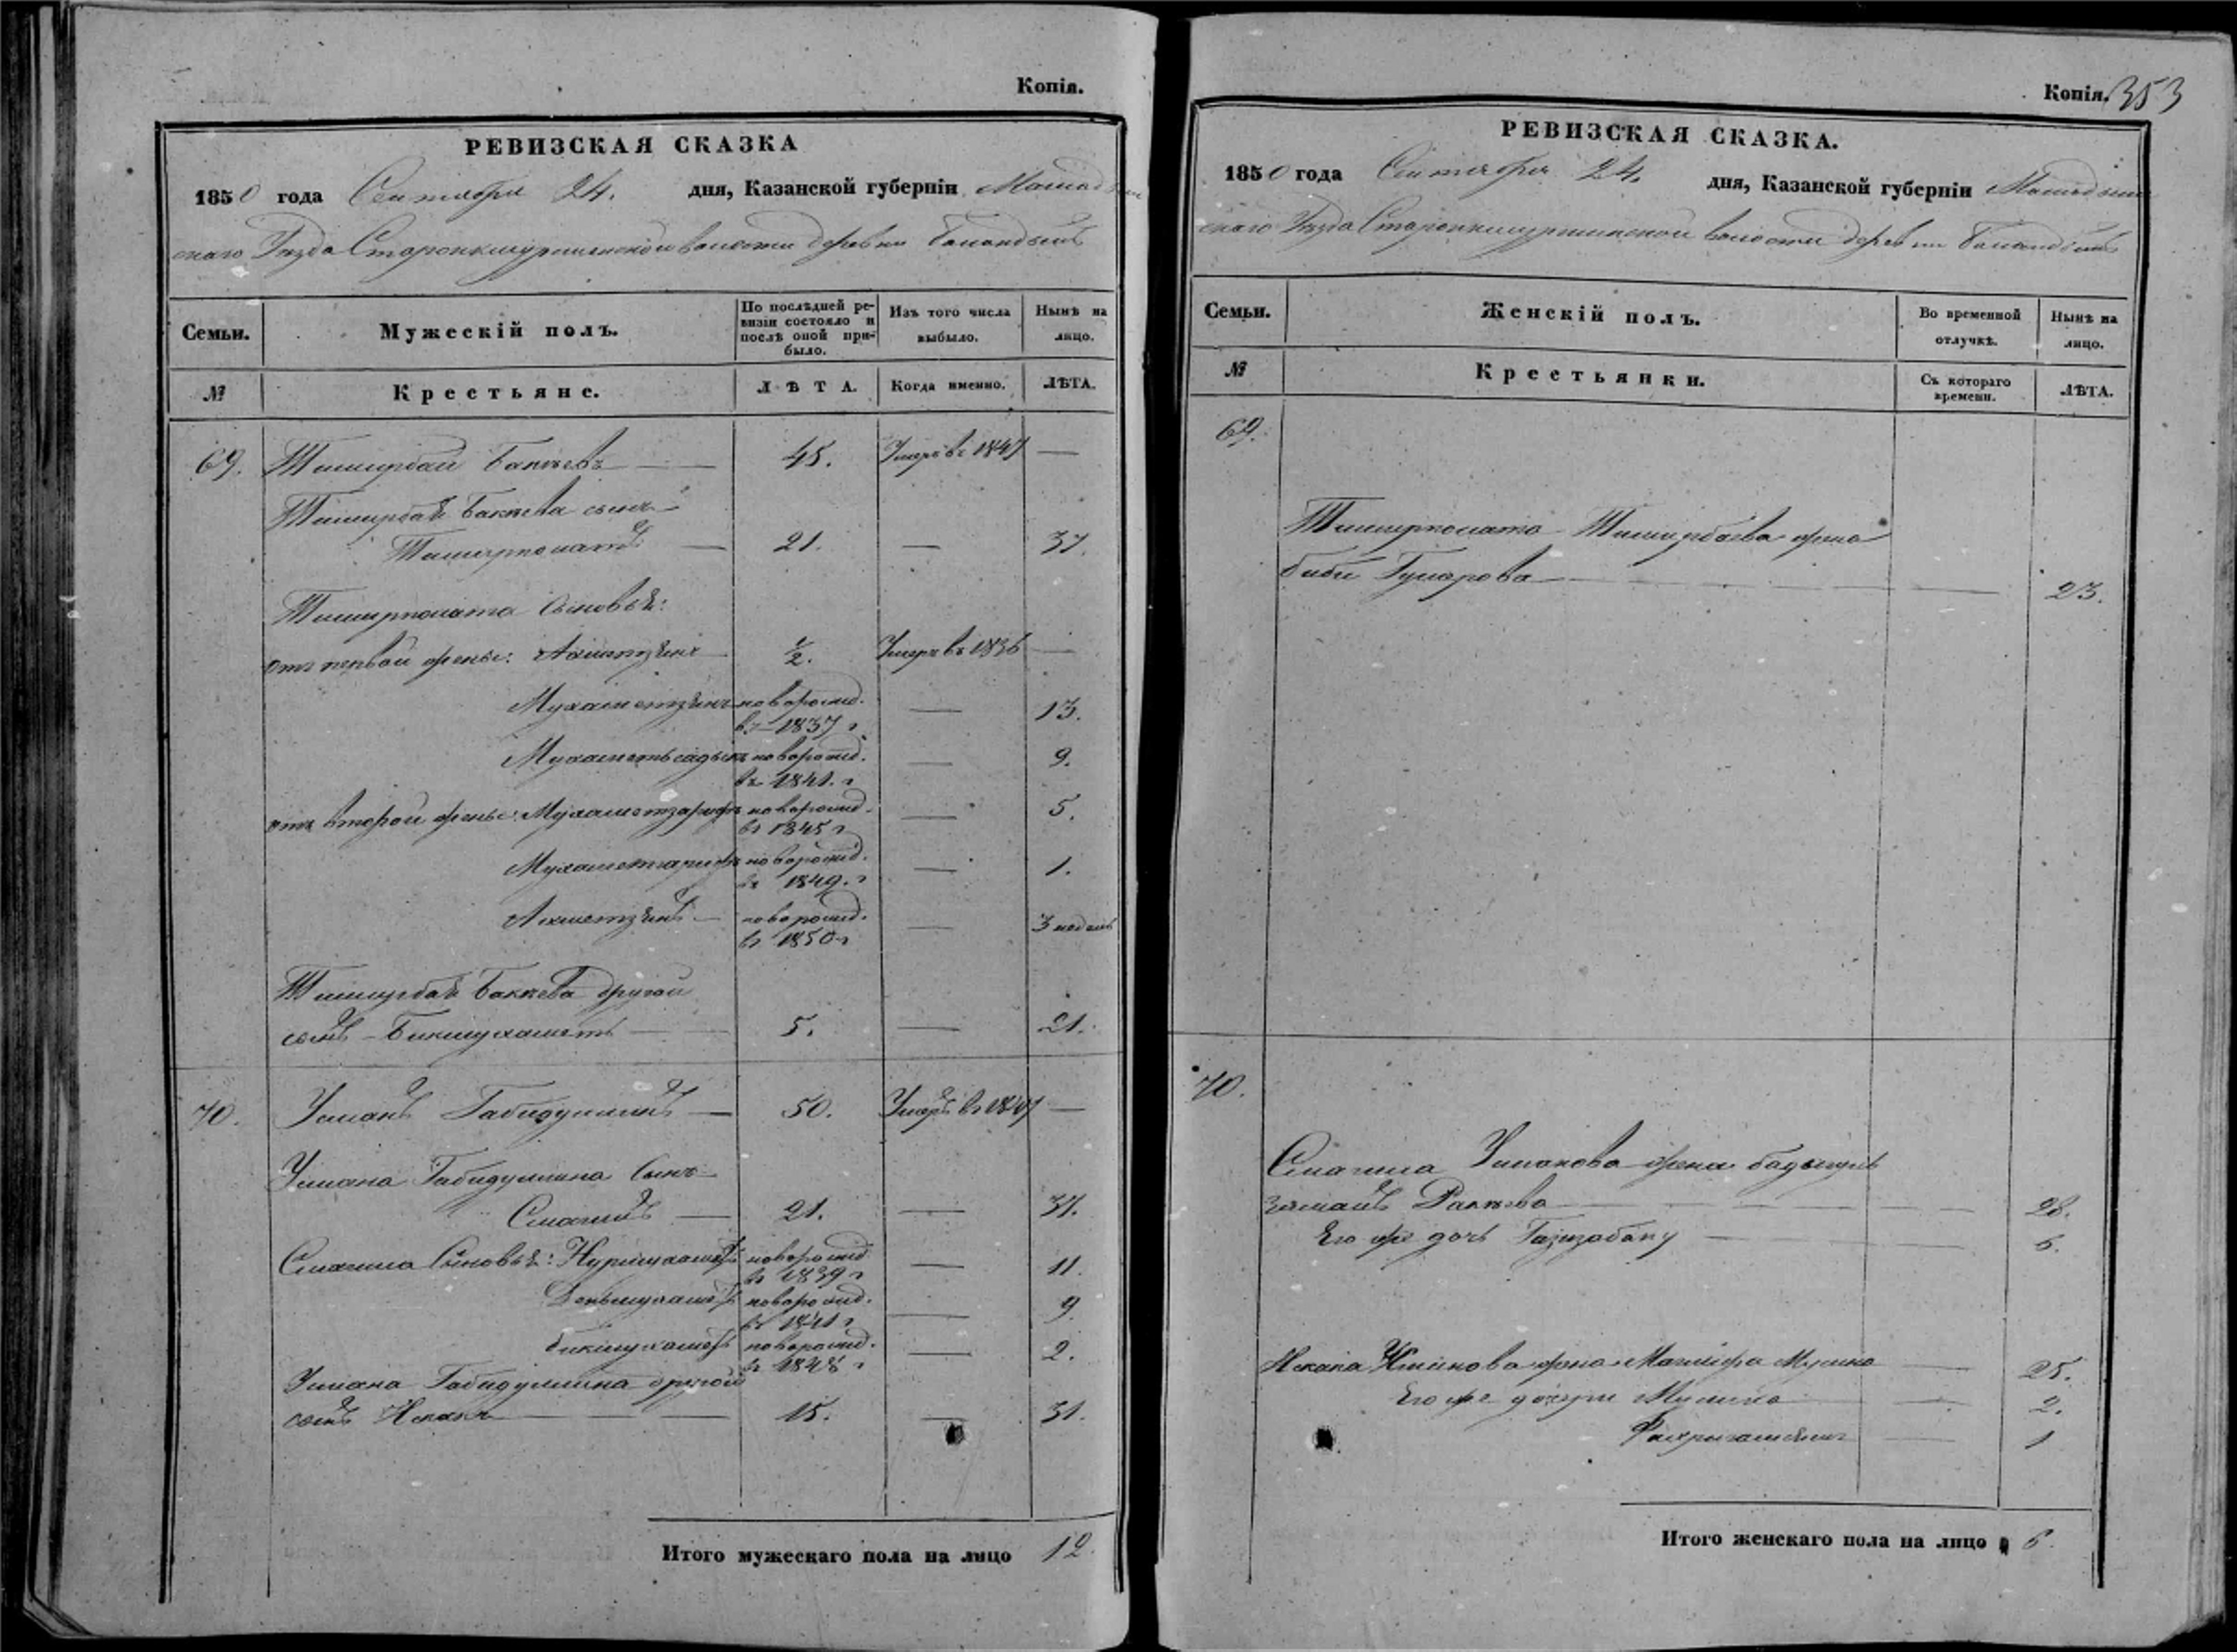 Копія.
РЕВИЗСКАЯ СКАЗКА
1850 года Сентября 24. дня, Казанской губерніи
скаго Уѣзда волости деревни
Семьи. Мужескій полъ. По послѣдней ревизіи состояло и послѣ оной прибыло. Изъ того числа выбыло. Нынѣ на лицо.
№ Крестьяне. ЛѢТА. Когда именно. ЛѢТА.
69. Тимирбай Баккѣевъ — 45. Умеръ въ 1847 —
Тимирбая Баккѣева сынъ
Тимирполатъ — 21. — 37.
Тимирполата сыновья:
отъ первой жены: 1/2. Умеръ въ 1836 —
Мухаметзянъ новорожд. — 13.
въ 1837 г
Мухаметьсадыкъ новорожд. — 9.
въ 1841. г
отъ второй жены: Мухаметзарифъ новорожд. — 5.
въ 1845 г
Мухаметгарифъ новорожд. — 1.
въ 1849. г
Ахметзянъ — новорожд. — 3 недель
въ 1850 г
Тимирбая Баккѣева другой
сынъ — Бикмухаметъ — 5. — 21.
70. Усманъ Габидуллинъ — 50. Умеръ въ 1847 —
Усмана Габидуллина сынъ
Смагилъ — 21. — 37.
Смагила сыновья: Нурмухаметъ новорожд. — 11.
въ 1839 г
новорожд. — 9.
въ 1841 г
Бикмухаметъ новорожд. — 2.
въ 1848 г
Усмана Габидуллина другой
сынъ — 15. — 31.
Итого мужескаго пола на лицо 12.
Копія. 353
РЕВИЗСКАЯ СКАЗКА.
1850 года Сентября 24. дня, Казанской губерніи
скаго Уѣзда волости деревни
Семьи. Женскій полъ. Во временной отлучкѣ. Нынѣ на лицо.
№ Крестьянки. Съ котораго времени. ЛѢТА.
69.
Тимирполата Тимирбаева жена
Биби Гумарова — 23.
70.
Смагила Усманова жена
28.
Его же дочь Газизабану — 6.
Усманова жена Мусина — 25.
Его же дочери — 2.
— 1
Итого женскаго пола на лицо 6.